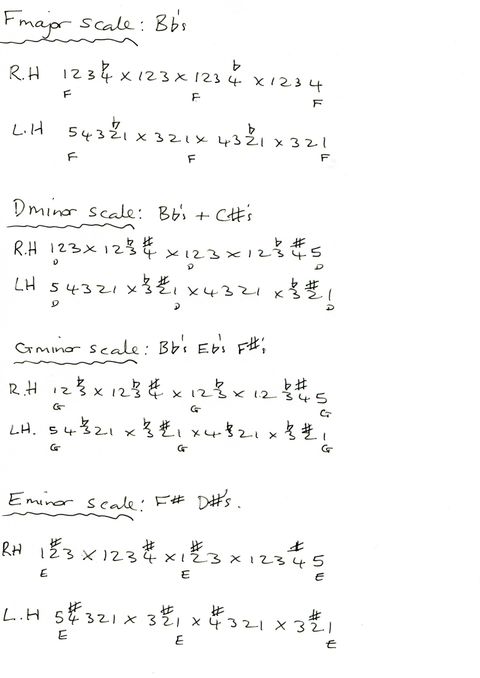 Fmajor scale: Bb's
R.H 1 2 3 4 x 1 2 3 x 1 2 3 4 x 1 2 3 4
b b
F F F
L.H 5 4 3 2 1 x 3 2 1 x 4 3 2 1 x 3 2 1
b b
F F F
Dminor scale: Bb's + C#'s
R.H 1 2 3 x 1 2 3 4 x 1 2 3 x 1 2 3 4 5
b # b #
D D D
LH 5 4 3 2 1 x 3 2 1 x 4 3 2 1 x 3 2 1
b # b #
D D D
Gminor scale: Bb's Eb's F#'s
R.H 1 2 3 x 1 2 3 4 x 1 2 3 x 1 2 3 4 5
b b # b b #
G G G
LH. 5 4 3 2 1 x 3 2 1 x 4 3 2 1 x 3 2 1
b b # b b #
G G G
Eminor scale: F# D#'s.
RH 1 2 3 x 1 2 3 4 x 1 2 3 x 1 2 3 4 5
# # # #
E E E
L.H 5 4 3 2 1 x 3 2 1 x 4 3 2 1 x 3 2 1
# # # #
E E E